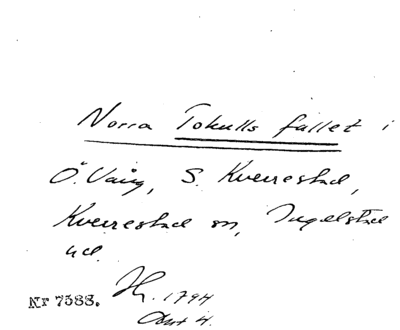 Norra Tokulls fallet i
Ö. Vång, S. Kverrestad,
Kverrestad sn, Ingelstad
hd.
Nr 7588. 1794
Akt 4.